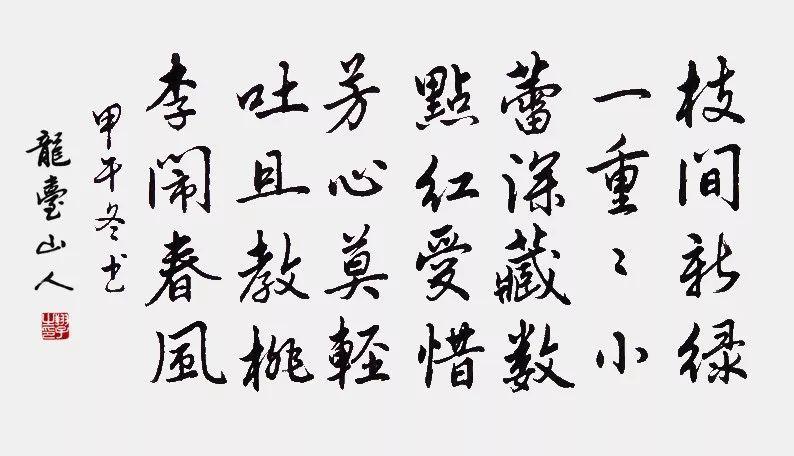 枝间新绿
一重〻小
蕾深藏数
點红爱惜
芳心莫輕
吐且教桃
李闹春風
甲午冬书
龍臺山人